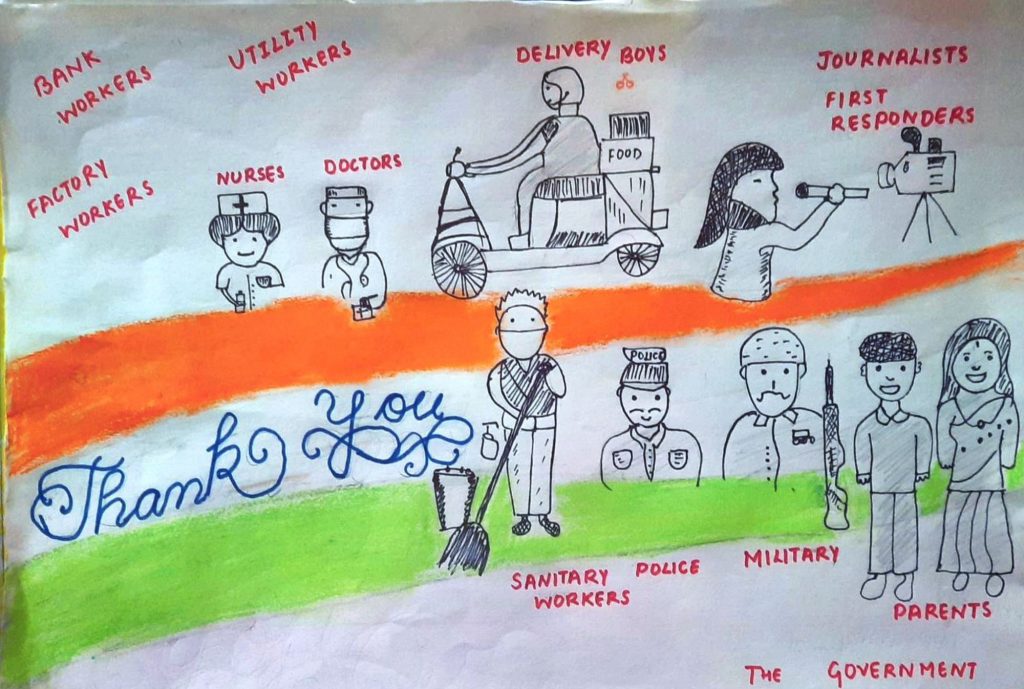 BANK
WORKERS
UTILITY
WORKERS
DELIVERY BOYS
JOURNALISTS
FIRST
RESPONDERS
FACTORY
WORKERS
NURSES
DOCTORS
FOOD
POLICE
Thank You
SANITARY
WORKERS
POLICE
MILITARY
PARENTS
THE GOVERNMENT